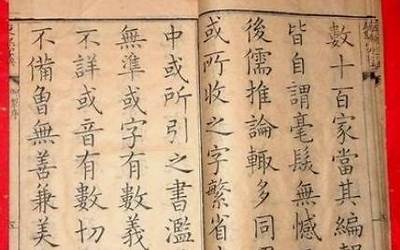 數十百家當其編
皆自謂毫髮無憾
後儒推論輒多同
或所收之字繁省
中或所引之書濫
無準或字有數義
不詳或音有數切
不備曾無善兼美